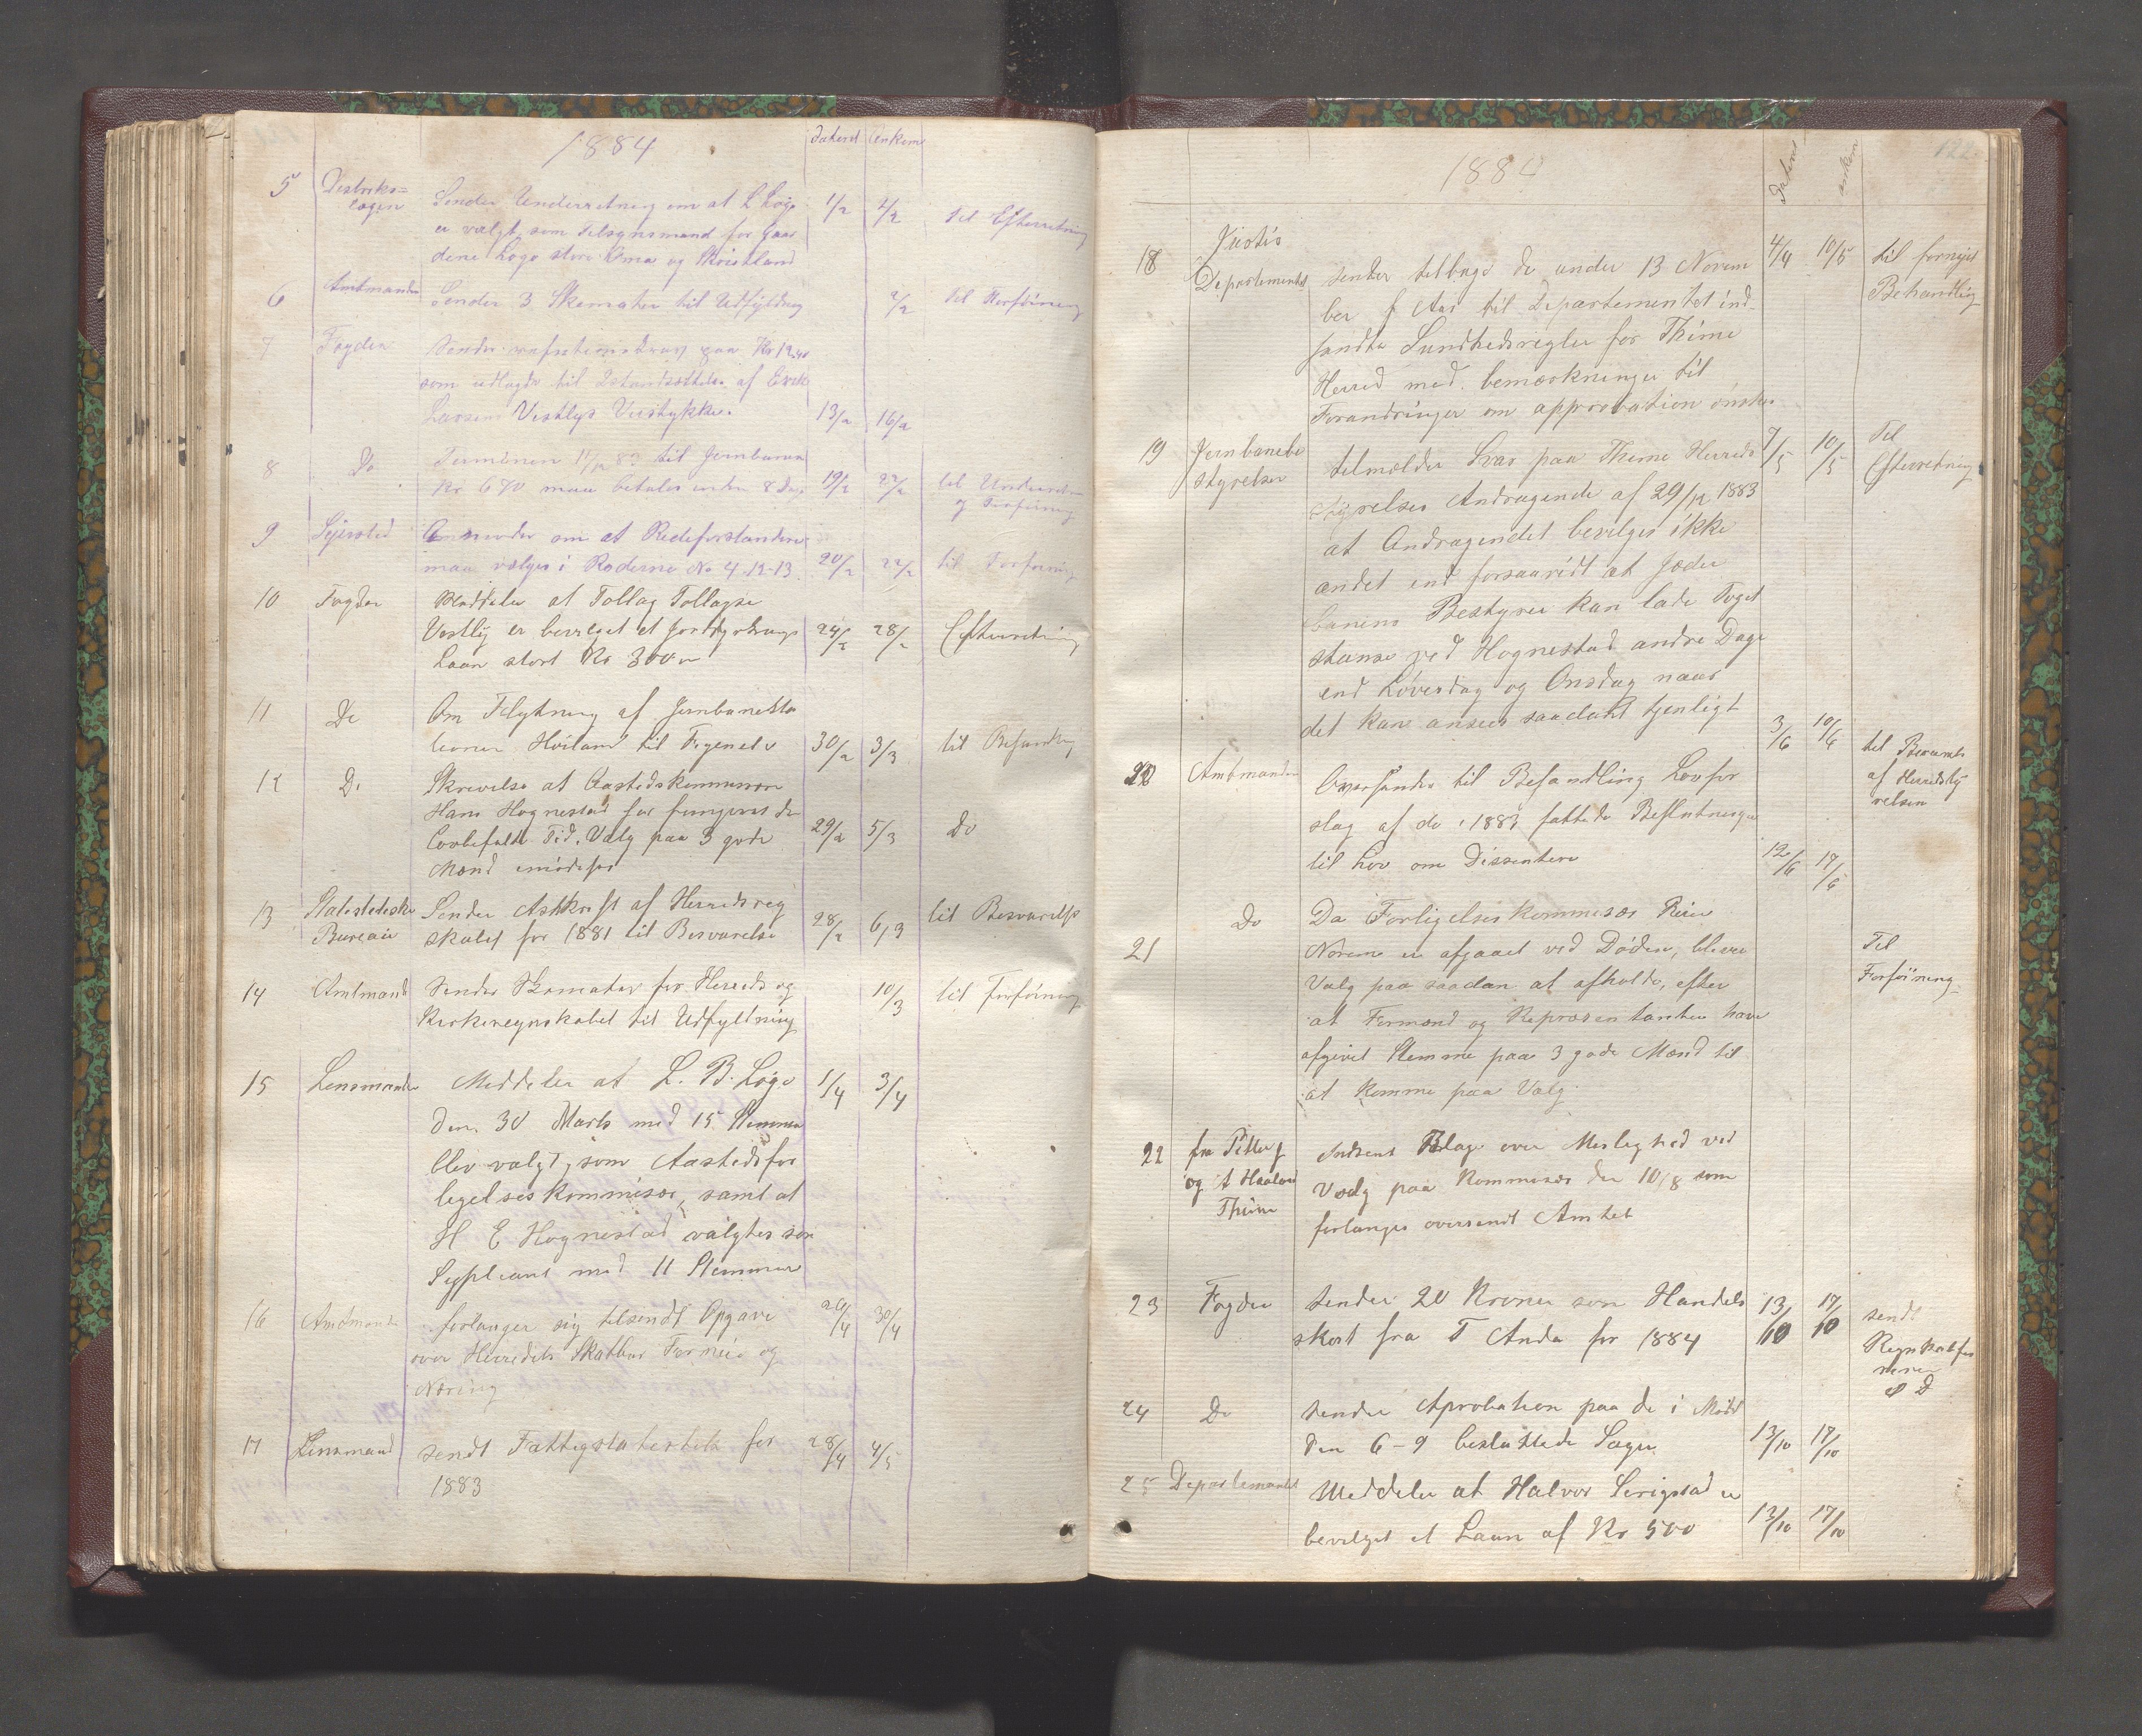 1884
dateret ankom
5 Destrikts=
lægen
Sender Underretning om at L Løge 1/2 2/2 Til Efterretning
er valgt som Tilsynsmand for Gaar
dene Løge store Oma og Skrestland
6 Amtmanden Sender 3 Skemater til Udfyldning 2/2 Til Forføining
7 Fogden Sender paa Kr 12.40
som udlagde til Istandsættelse af Erik
Larsen Vestlys Veistykke. 13/2 16/2
8 Do Terminen 11/12 83 til Jernbanen
Kr 670 maa betales inden 8 Dage 19/2 22/2 til Underretn
og Forføining
9 Sejersted Anmoder om at Rodeforstandere
maa vælges i Roderne No 4.12-13. 20/2 22/2 til Forføining
10 Fogden Meddeler at Tollag Tollagse
Vestly er bevilget et Jorddyrknings 24/2 28/2 Efterretning
Laan stort Kr 300
11 Do Om Flytning af Jernbanesta
tionen Høiland til 30/2 3/3 til Behandling
12 Do Skrivelse at Aastedskommissær
Hans Hognestad har fungeret den
Lovbefalede Tid. Valg paa 3 gode 29/2 5/3 Do
Mænd imødesees
13 Statestedeske
Bureau
Sender Afskrift af Herredsreg
skabet for 1881 til Besvarelse 28/2 6/3 til Besvarelse
14 Amtmand Sender Skemater for Herreds og 10/3 til Forføining
Kirkeregnskabet til Udfyltning
15 Lensmanden Meddeler at L. B. Løge 1/4 3/4
Den 30 Marts med 15 Stemmer
blev valgt som Aastedsfor
legelseskommisær, samt at
H E Hognestad valgtes som
Supleant med 11 Stemmer
16 Amtmanden forlanger sig tilsendt Opgave 26/4 30/4
over Herredets Skatbar Formue og
Næring
17 Lensmand sendt Fattigstatestik for 28/4 4/5
1883
122
1884
Dateret ankom
18 Justis
Departementet
sender tilbage de under 13 Novem 4/4 10/5 til fornyet
ber f Aar til Departementet ind- Behandling
sandte Sundhedsregler for Thime
Herred med bemærkninger til
Forandringer om approbation ønskes
19 Jernbanebe
styrelsen
tilmelder Svar paa Thime Herreds 7/5 10/5 Til
Efterretning
styrelses Andragende af 29/12 1883
at Andragendet bevilges ikke
andet end forsaavidt at Jæder
banens Bestyrer kan lade Toget
stanse ved Hognestad andre Dage
end Løverdag og Onsdag naar
det kan ansees saadant tjenligt
20 Amtmanden Oversender til Behandling Lovfor 3/6 10/6 til
af Heredsty
relsen
slag af de i 1883 fattede Beslutninger
til Lov om Dissentere 12/6 17/6
21 Do Da Forligelseskommisær Reier
Norem er afgaaet ved Døden, bliver Til
Valg paa saadan at afholde, efter Forføining
at Formænd og Repræsentanter have
afgivet Stemme paa 3 gode Mænd til
at komme paa Valg.
22 fra
og A Haaland
Thime
Indsent Klage over Meslighed ved
Valg paa Kommisær den 10/8 som
forlanges oversendt Amtet
23 Fogden Sender 20 Kroner som Handels 13/10 17/10 sendt
skat fra T Anda for 1884 Regnskabsfø
reren
24 Do Sender Aprobation paa de i Møde
den 6-9 besluttede Sager 13/10 17/10
25 Departementet Meddeler at Halvor Serigstad er
bevilget et Laan af Kr 500 13/10 17/10